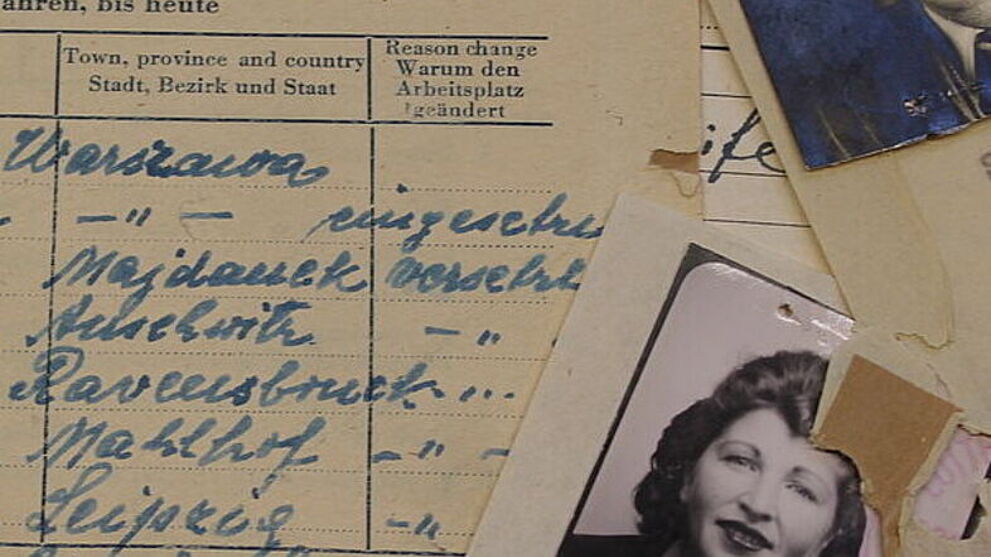 ahren, bis heute
Town, province and country
Stadt, Bezirk und Staat
Reason change
Warum den
Arbeitsplatz
geändert
Warszawa
-"- eingesetzt
Majdanek versetzt
Auschwitz -"
Ravensbruck - "..
Mahlhof -"-
Leipzig -"
ife